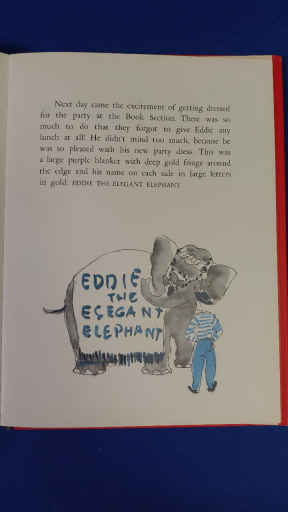 Next day came the excitement of getting dressed
for the party at the Book Section. There was so
much to do that they forgot to give Eddie any
lunch at all! He didn't mind too much, because he
was so pleased with his new party dress. This was
a large purple blanket with deep gold fringe around
the edge and his name on each side in large letters
in gold: EDDIE THE ELEGANT ELEPHANT.
EDDIE
THE
ELEGANT
ELEPHANT